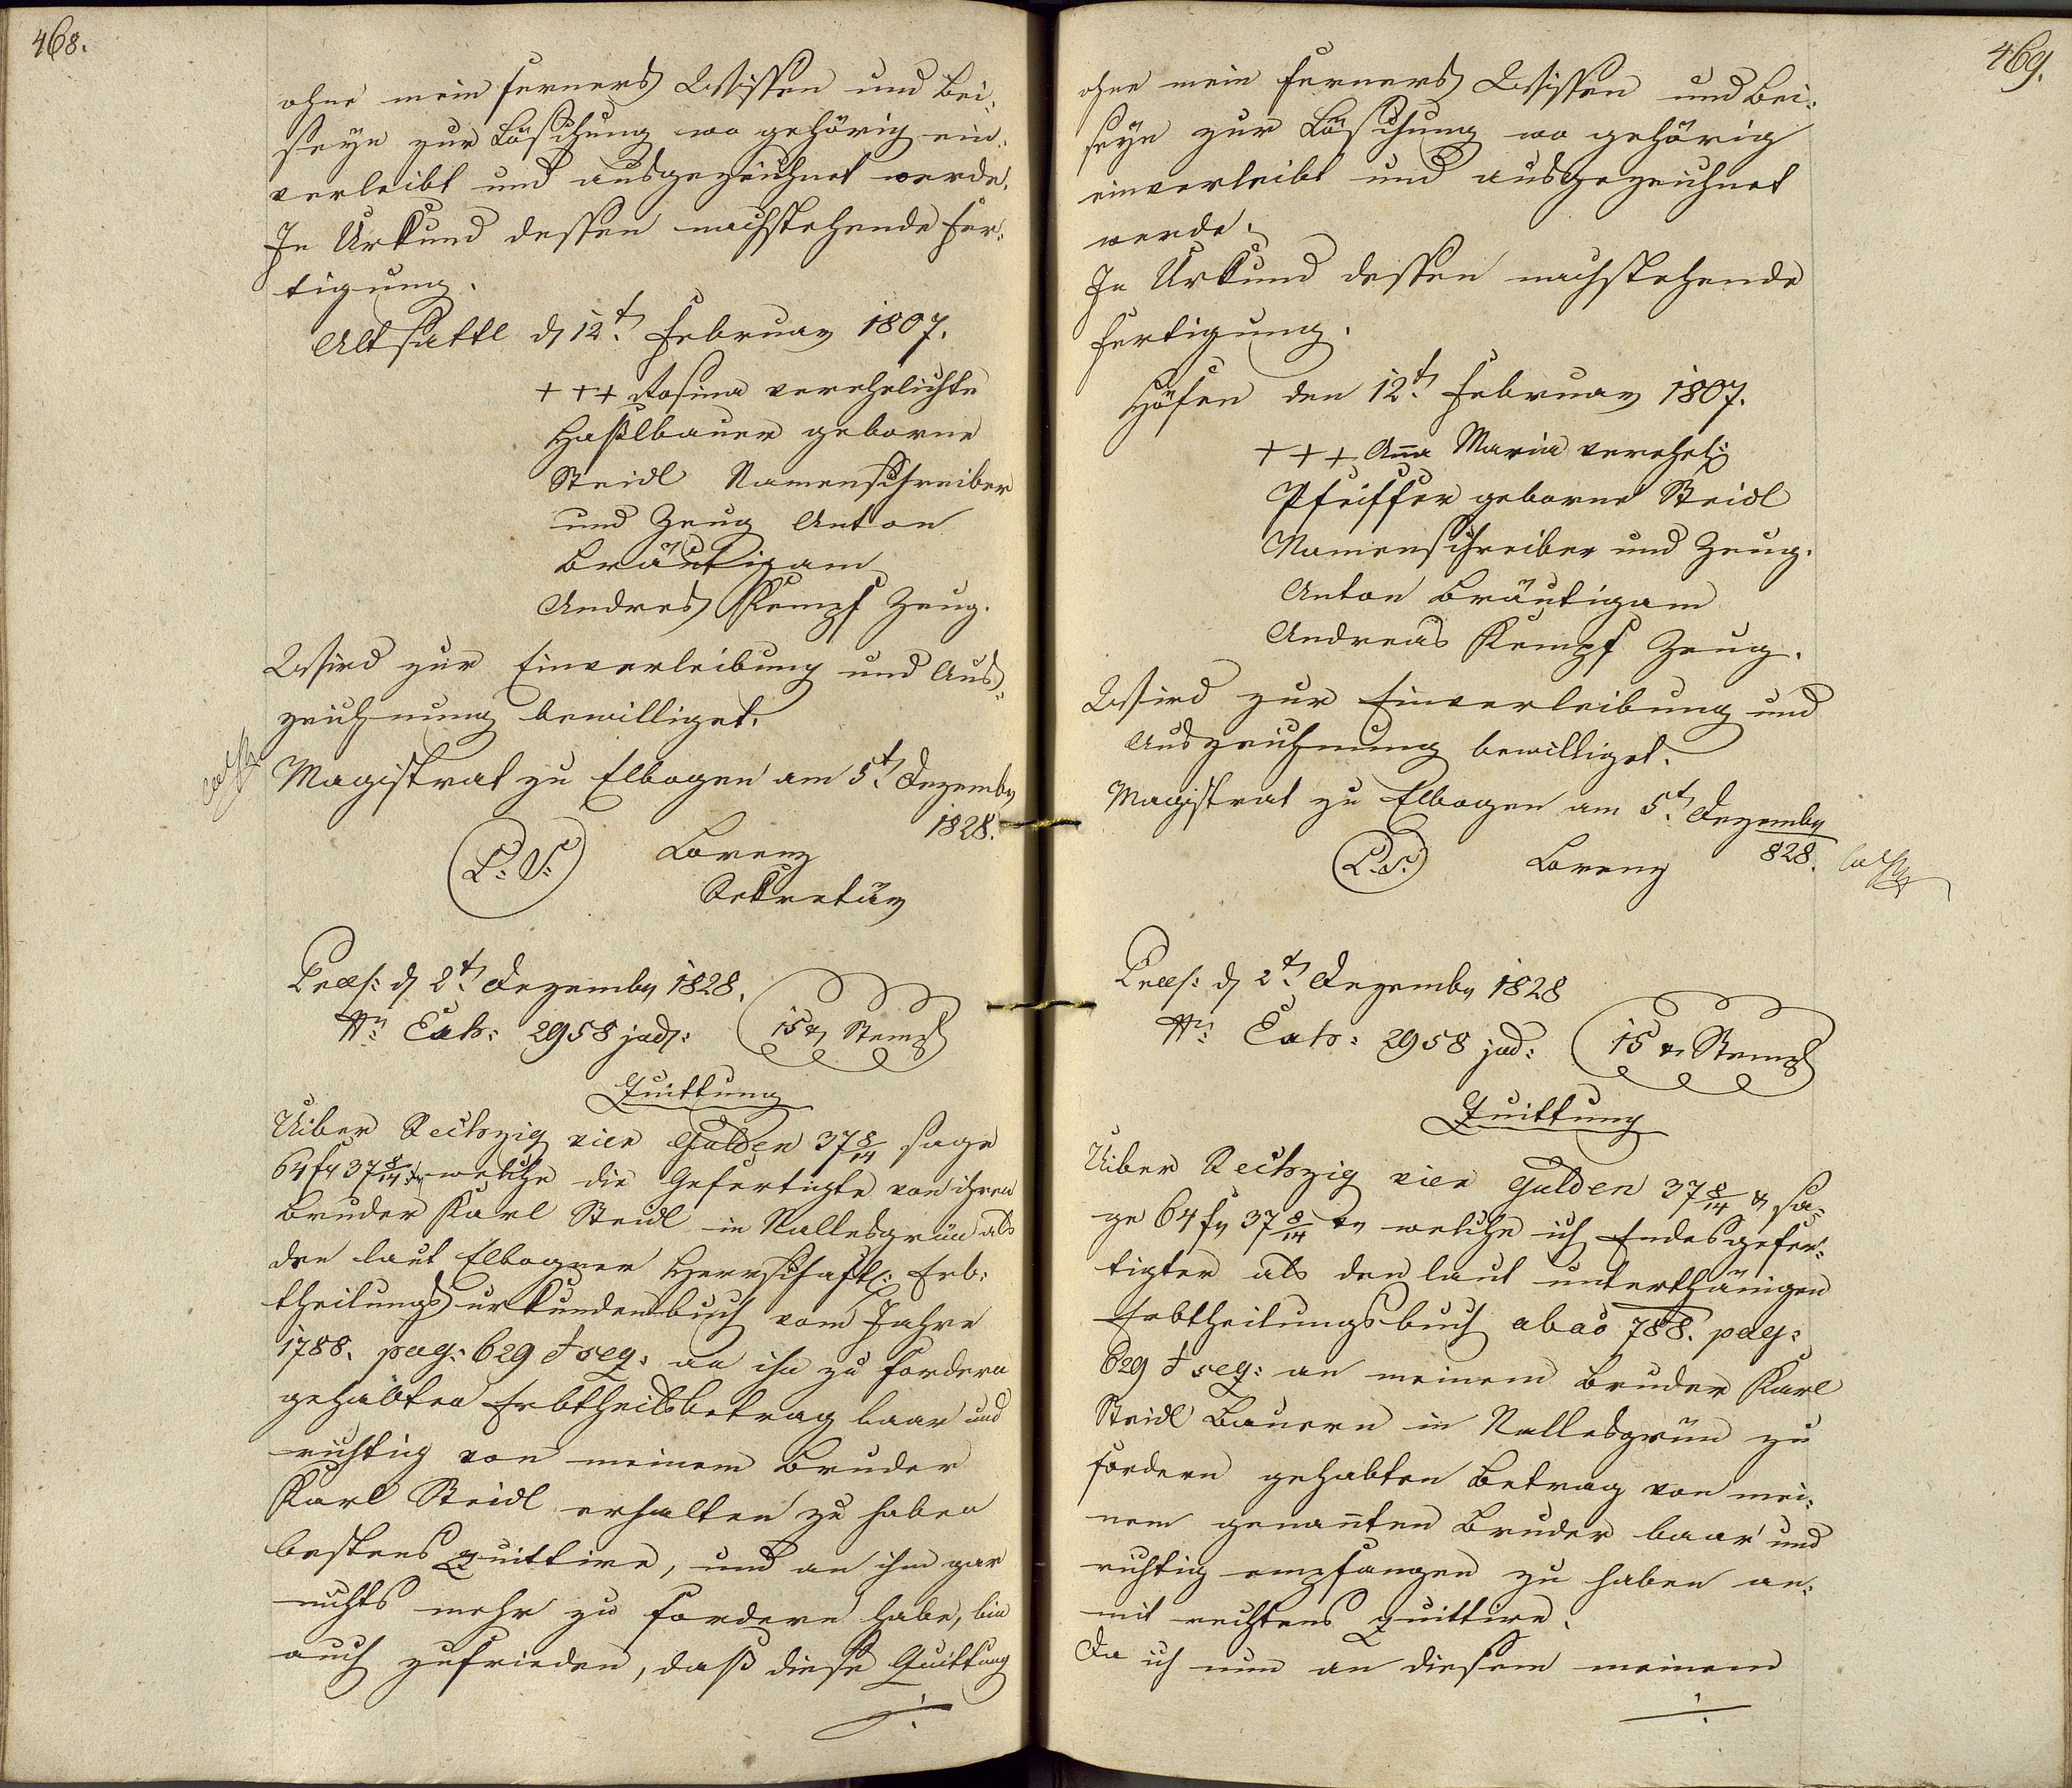 468.
ohne mein ferners Wissen und Bei-
seyn zur Löschung wo gehörig ein-
verleibt und ausgezeichnet werde.
In Urkund dessen nachstehende Fer-
tigung.
Altsattl d 12t. Februar 1807.
+++ Rosina verehelichte
Haßlbauer geborne
Steidl Namenschreiber
und Zeug Anton
Bräutigam
Andres Kempf Zeug.
Wird zur Einverleibung und Aus-
zeichnung bewilliget.
Magistrat zu Elbogen am 5t. Dezemb
1828.
L: S:
Lorenz
Sekretär
Praes: d 2t. Dezemb 1828.
Nr: Exh: 2958 jud:
15 x Stempl
Quittung
Uiber Sechszig vier Gulden 37 8/14 sage
64 f 37 8/14 x welche die Gefertigte von ihren
Bruder Karl Steidl in Nallesgrün als
den laut Elbogner Herrschaftl: Erb-
theilungsurkundenbuch vom Jahre
1788. pag: 629 & seq: an ihn zu fordern
gehabten Erbtheilsbetrag baar und
richtig von meinem Bruder
Karl Steidl erhalten zu haben
bestens quittire, und an ihm gar
nichts mehr zu fordern habe, bin
auch zufrieden, daß diese Quittung
./.
469.
ohne mein ferners Wissen und Bei-
seyn zur Löschung wo gehörig
einverleibt und ausgezeichnet
werde.
In Urkund dessen nachstehende
Fertigung.
Höfen den 12t. Februar 1807.
+++ Anna Maria verehel:
Pfeiffer geborne Steidl
Namenschreiber und Zeug.
Anton Bräutigam
Andreas Kempf Zeug.
Wird zur Einverleibung und
Auszeichnung bewilliget.
Magistrat zu Elbogen am 5t. Dezemb
828.
L.S.
Lorenz
Praes: d 2t. Dezemb 1828
Nr: Exh: 2958 jud:
15 x Stempl
Quittung
Uiber Sechszig vier Gulden 37 8/14 x sa-
ge 64 f 37 8/14 x welche ich Endesgefer-
tigter als den laut unterthänigen
Erbtheilungsbuch ab ao 788. pag:
629 & seq: an meinem Bruder Karl
Steidl Bauern in Nallesgrün zu
fordern gehabten Betrag von mei-
nem genannten Bruder baar und
richtig empfangen zu haben an-
mit rechtens quittire.
Da ich nun an diesem meinem
./.